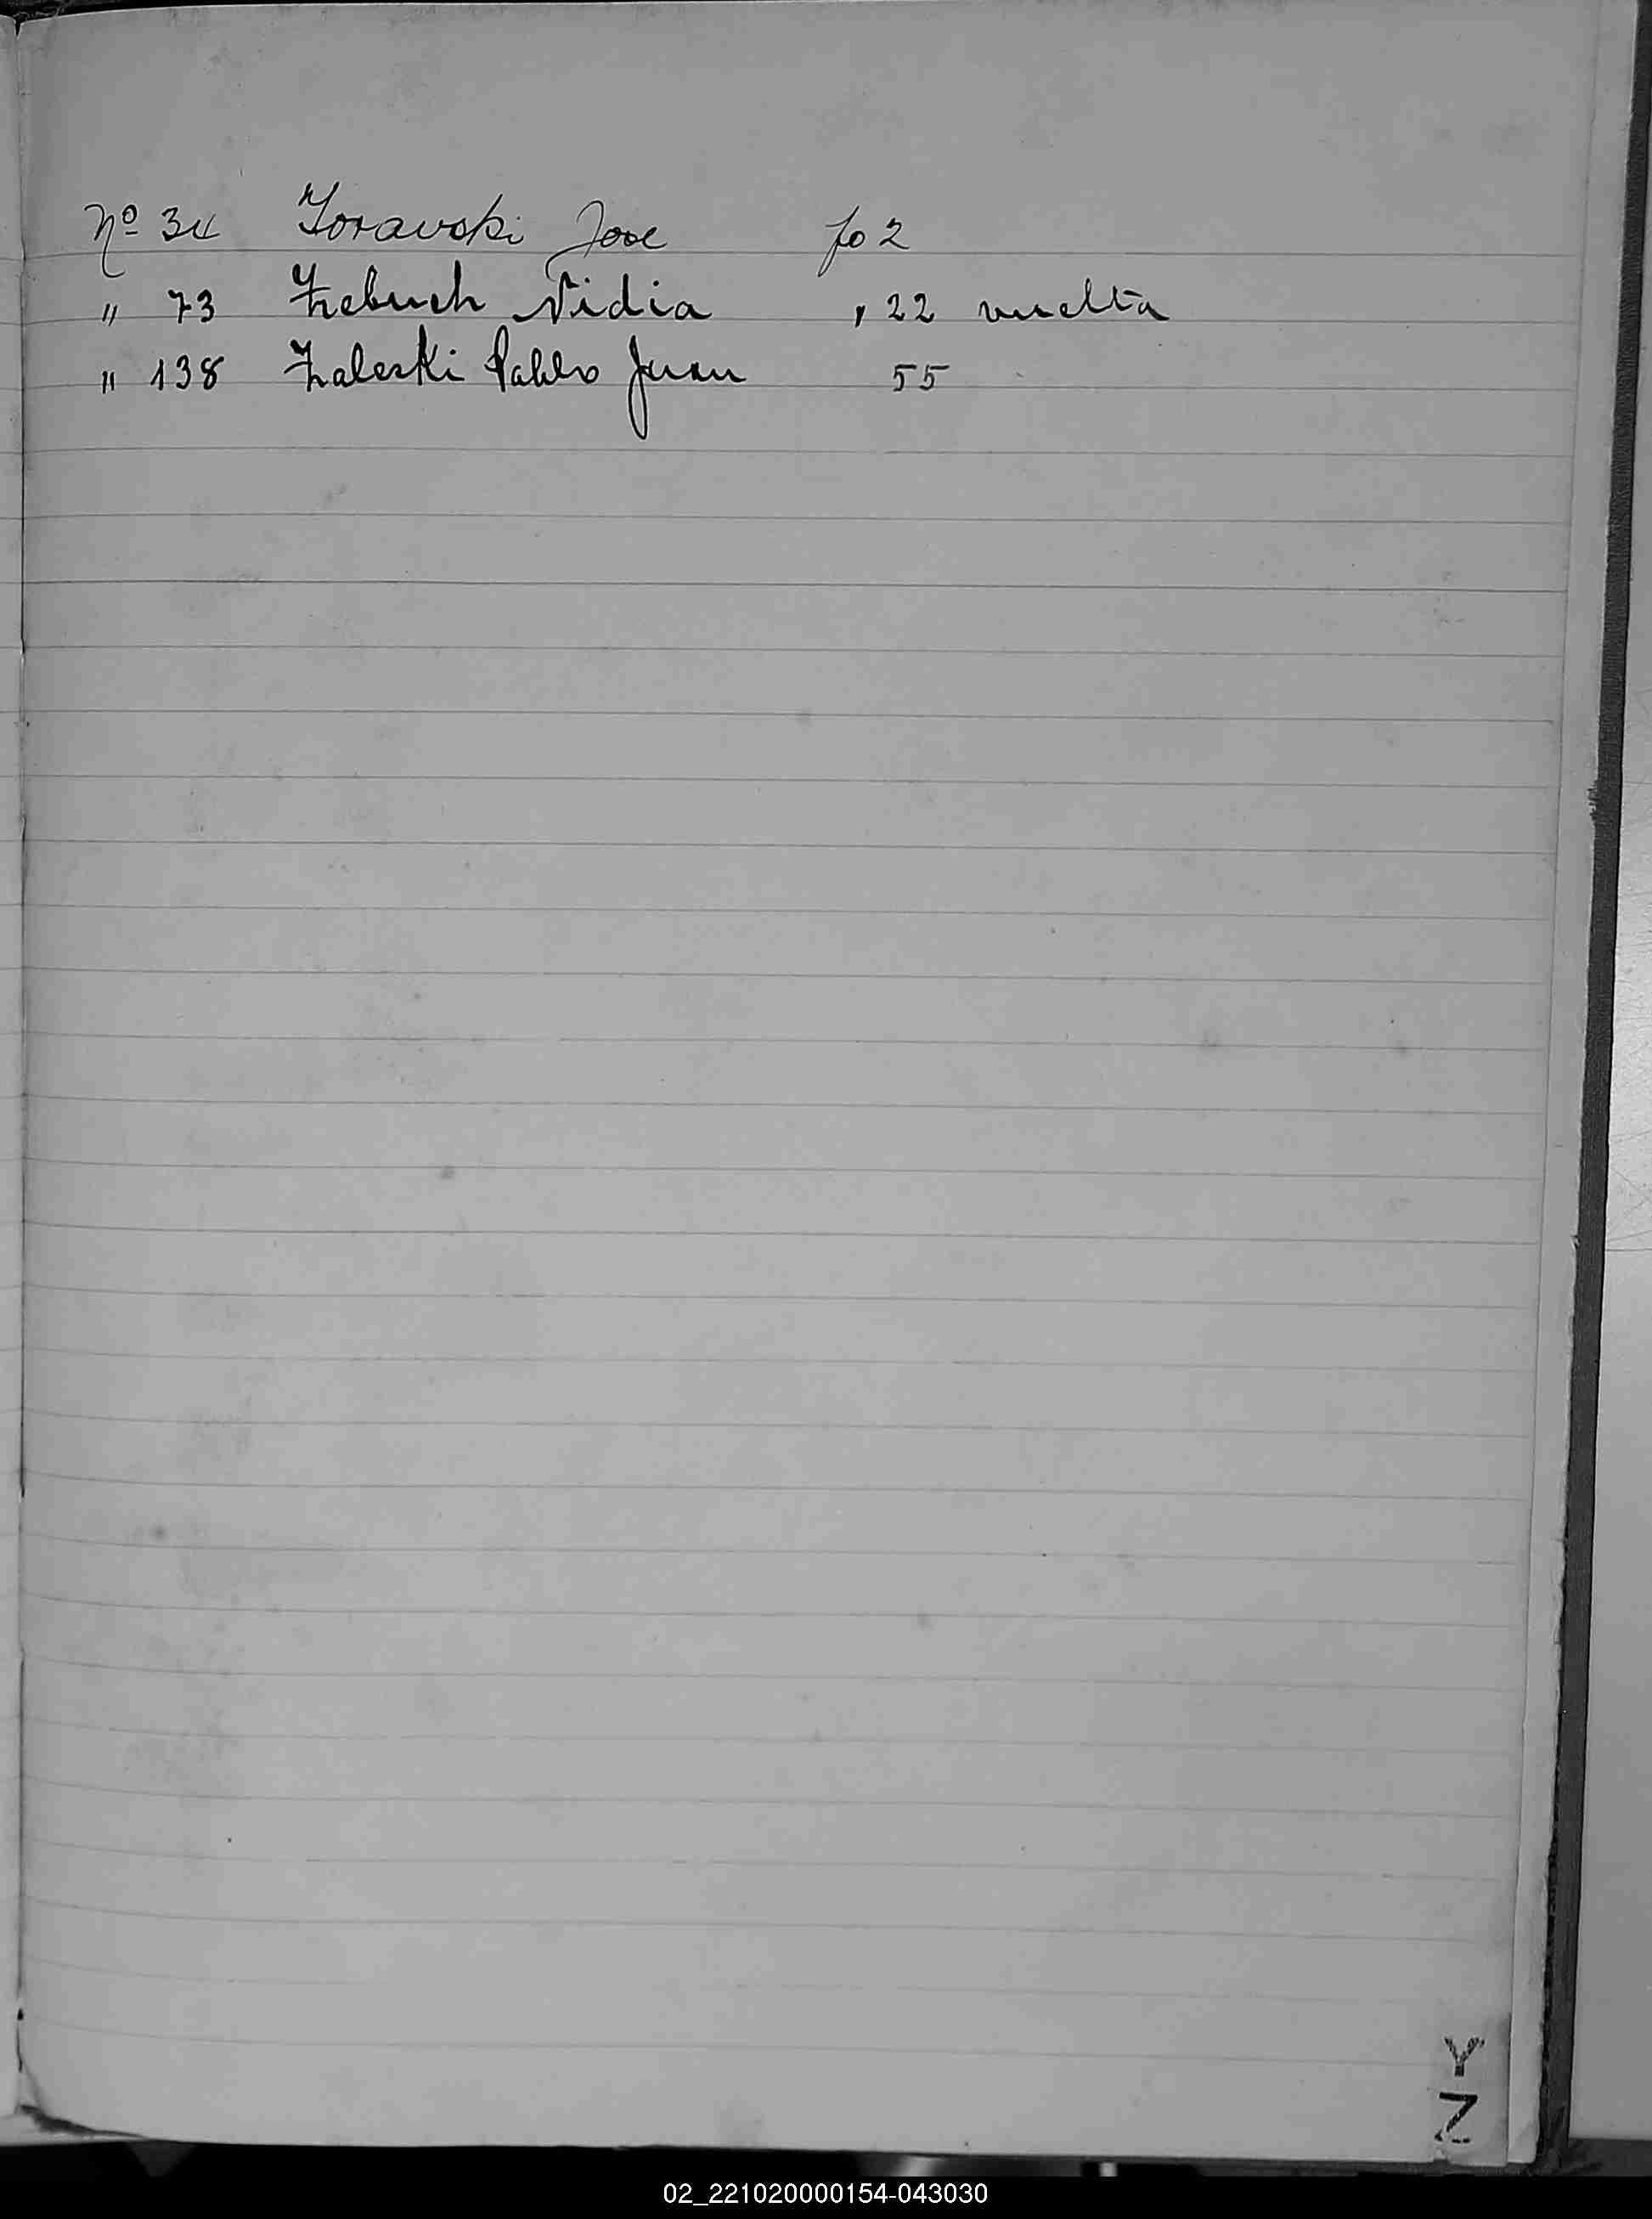 Nº 34 Zoravski Jose fo 2
" 73 Zrebuch Nidia " 22 vuelta
" 138 Zaleski Pablo Juan 55
Y
Z
02_221020000154-043030